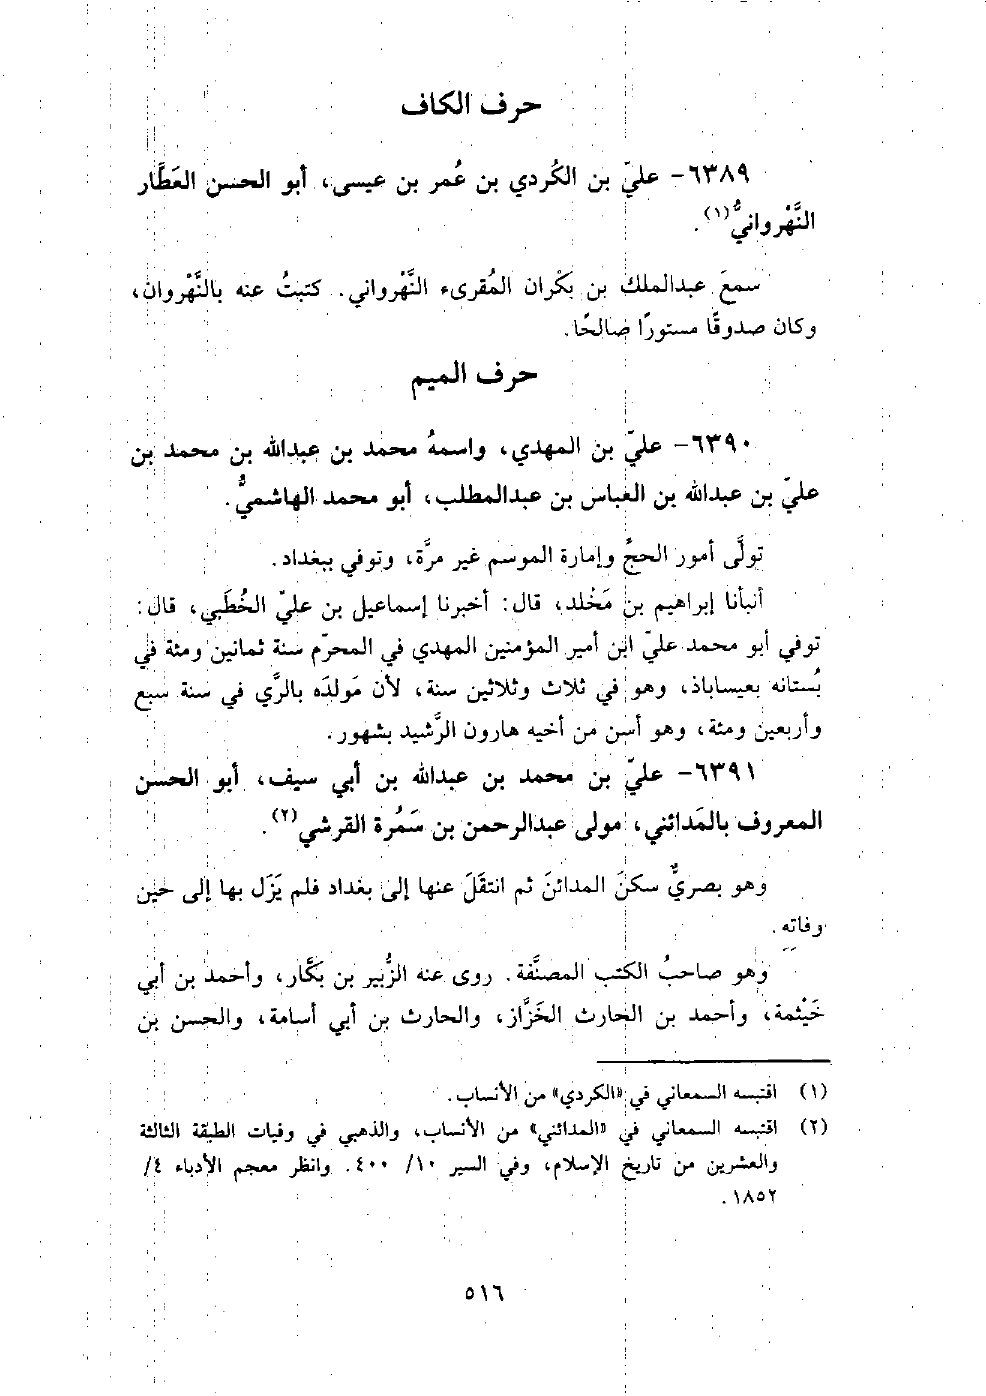 حرف الكاف
٦٣٨٩- عليّ بن الكُردي بن عُمر بن عيسى، أبو الحسن العَطَّار
النَّهْروانيُّ(١).
سمعَ عبدالملك بن بَكْران المُقرىء النَّهْرواني. كتبتُ عنه بالنَّهْروان،
وكان صدوقًا مستورًا صالحًا.
حرف الميم
٦٣٩٠- عليّ بن المهدي، واسمهُ محمد بن عبدالله بن محمد بن
عليّ بن عبدالله بن العباس بن عبدالمطلب، أبو محمد الهاشميُّ.
تولَّى أمور الحجِّ وإمارة الموسم غير مرَّة، وتوفي ببغداد.
أنبأنا إبراهيم بن مَخْلد، قال: أخبرنا إسماعيل بن عليّ الخُطَبي، قال:
توفي أبو محمد عليّ ابن أمير المؤمنين المهدي في المحرّم سنة ثمانين ومئة في
بُستانه بعيساباذ، وهو في ثلاث وثلاثين سنة، لأن مَولدَه بالرَّي في سنة سبع
وأربعين ومئة، وهو أسن من أخيه هارون الرَّشيد بشهور.
٦٣٩١- عليّ بن محمد بن عبدالله بن أبي سيف، أبو الحسن
المعروف بالمَدائني، مولى عبدالرحمن بن سَمُرة القرشي(٢).
وهو بصريٌّ سكنَ المدائنَ ثم انتقَلَ عنها إلى بغداد فلم يَزَل بها إلى حين
وفاتِهِ.
وهو صاحبُ الكتب المصنَّفة. روى عنه الزُّبير بن بَكَّار، وأحمد بن أبي
خَيْثمة، وأحمد بن الحارث الخَزَّاز، والحارث بن أبي أسامة، والحسن بن
(١) اقتبسه السمعاني في «الكردي» من الأنساب.
(٢) اقتبسه السمعاني في «المدائني» من الأنساب، والذهبي في وفيات الطبقة الثالثة
والعشرين من تاريخ الإسلام، وفي السير ١٠/ ٤٠٠. وانظر معجم الأدباء ٤/
١٨٥٢.
٥١٦